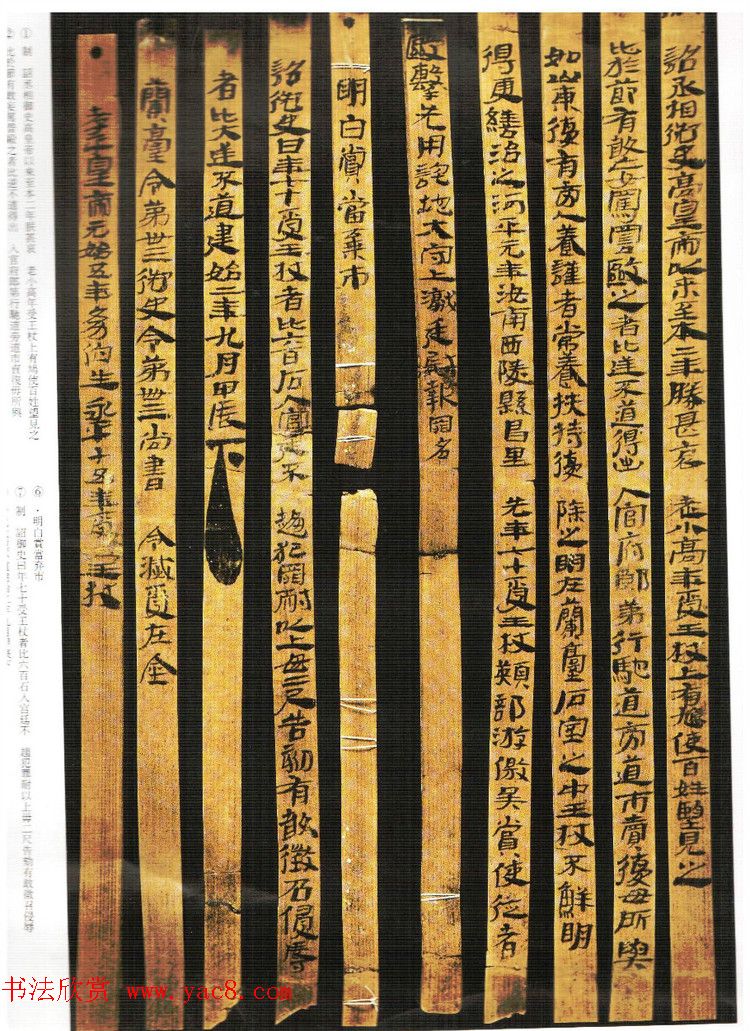 詔丞相御史高皇帝以來至本二年勝甚哀 老小高年受王杖上有鳩使百姓望見之
比於節有敢妄罵詈毆之者比逆不道得出 入官府郎第行馳道旁道市賣復毋所與
如山東復有旁人養謹者常養扶持復 除之明在蘭臺石室之中王杖不鮮明
得更繕治之河平元年汝南西陵縣昌里 先年七十受王杖熲部游徼吳賞使從者
毆擊先用詑地大守上讞廷尉報罔名
明白賞當棄市
詔御史曰年七十受王杖者比六百石入宮廷不 趨犯罔耐以上毋二尺告劾有敢徵召侵辱
者比大逆不道建始二年九月甲辰下
蘭臺令第卅三御史令第卌三尚書 令滅受在金
孝平皇帝元始五年幼伯生永平十五年受王杖
⑥ ·明白賞當弃市
⑦ 制 詔御史曰年七十受王杖者比六百石入宮廷不 趨犯罪耐以上毋二尺告劾有敢徵召侵辱
① 制 詔丞相御史高皇帝以來至本二年朕甚哀 老小高年受王杖上有鳩使百姓望見之
比於節有敢妄罵詈毆之者比逆不道得出 入官府郎第行馳道旁道市賣復毋所與
书法欣赏 www.yac8.com